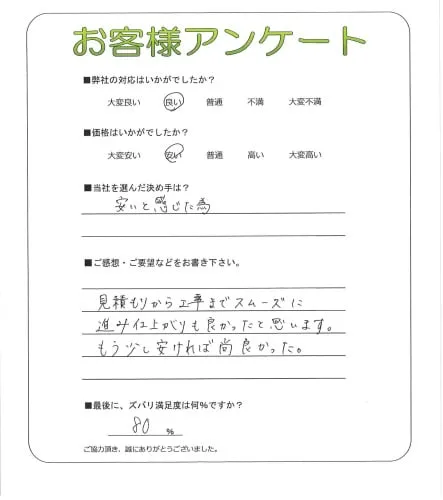 お客様アンケート
■弊社の対応はいかがでしたか？
大変良い 良い 普通 不満 大変不満
■価格はいかがでしたか？
大変安い 安い 普通 高い 大変高い
■当社を選んだ決め手は？
安いと感じた為
■ご感想・ご要望などをお書き下さい。
見積もりから工事までスムーズに
進み仕上がりも良かったと思います。
もう少し安ければ尚良かった。
■最後に、ズバリ満足度は何%ですか？
80 %
ご協力頂き、誠にありがとうございました。